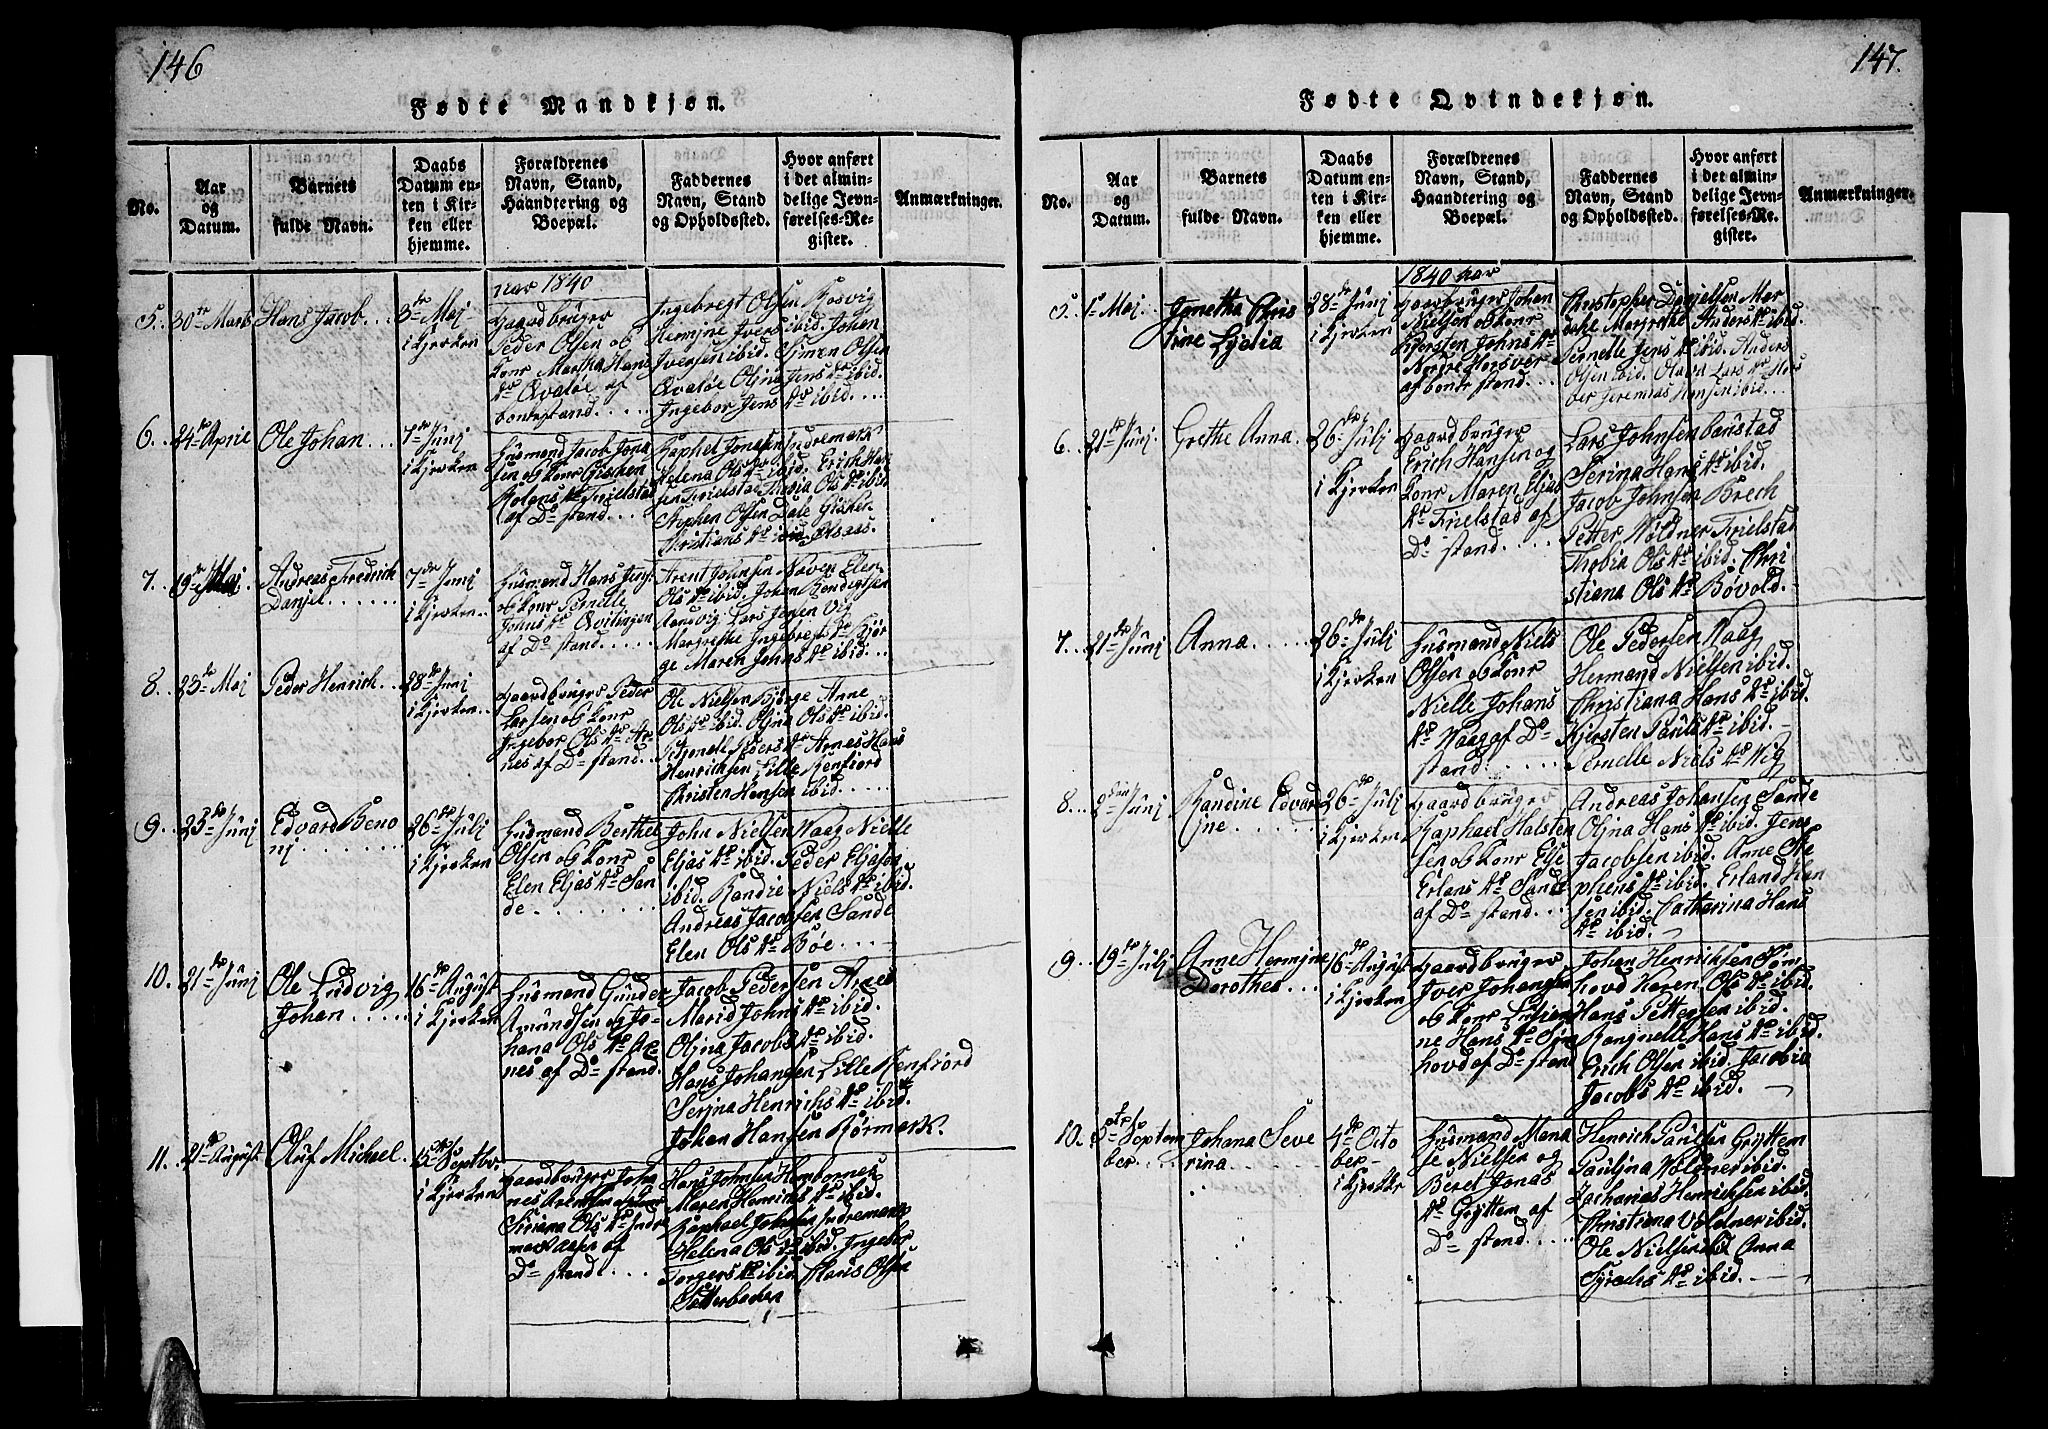 146
Fødte Mandkjøn.
No.
Aar
og
Datum.
Barnets
fulde Navn.
Daabs
Datum en-
ten i Kir-
ken eller
hjemme.
Forældrenes
Navn, Stand,
Haandtering og
Boepæl.
Faddernes
Navn, Stand
og Opholdssted.
Hvor anført
i det almin-
delige Jevn-
førelses-Re-
gister.
Anmærkninger.
aar 1840
5. 30te Marts
Hans Jacob
3de Maj
i Kjerken
Gaardbruger
Peder Olsen og
Konr Martha Hans
Dr Qvaløe af
bondestand.
Ingebregt Olsen Kosvig
Hemine Ivers ibid. Johan
Iversen ibid. Simen Olsen
Qvaløe Oljna Jens Dr ibid.
Ingebor Jens Dr ibid.
6. 24de April
Ole Johan
7de Junj
i Kjerken
Husmand Jacob Jona
sen og Konr
Trielstad
af Do stand.
Raphel Jonesen Indremark
Helena Ols Dr ibid. Erich Han
sen Trielstad Thobia Ols Dr ibid
Stephen Olsen Dale
Christians Dr ibid
7. 19de Maj
Andreas Fredrich
Danjel
7de Junj
i Kjerken
Husmand Hans
og Konr Pernelle
Johns Dr Qvitingen
af Do stand
Arent Johnsen Naven Elen
Ols Dr ibid. Johan
Lars Jansen Vig
Margrethe Ingebregts Dr Bjør
ge Maren Johns Dr ibid.
8. 23de Maj
Peder Henrich
28de Junj
i Kjerken
Gaardbruger Peder
Larsen og Konr
Ingebor Ols Dr Ar
nes af Do stand
Ole Nielsen Bjørge Anne
Ols Dr ibid. Oljna Ols Dr ibid.
Petronell Peders Dr Arnes Hans
Henrichsen Lille Renfiord
Christen Hansen ibid.
9. 23de Junj
Edvard Beno
nj
26de Julj
i Kjerken
Husmand Berthel
Olsen og Konr
Elen Eljas Dr San
de
John Nielsen Waag Nielle
Eljas Dr ibid. Peder Eljasen
ibid. Randie Niels Dr ibid.
Andreas Jacobsen Sande
Elen Ols Dr Bøe
10. 21de Junj
Ole Ludvig
Johan
16de August
i Kjerken
Husmand Gunder
Amundsen og Jo-
hana Ols Dr Ar
nes af Do stand.
Jacob Pedersen Arnes
Marid Johns Dr ibid.
Oljna Jacobs Dr ibid.
Hans Johansen Lille Renfiord
Serjna Henrichs Dr ibid.
Johan Hansen Rørmark.
11. 21de August
Oluf Michael
15de Septbr.
i Kjerken
Gaardbruger Joha
nes Arentsen og Konr
Siriana Ols Dr Indre
mark af
Do stand
Hans Johnsen
Maren Henrichs Dr ibid.
Raphael Johnsen Indremark
Helena Ols Dr ibid. Ingebor
Torgers Dr ibid. Hans Olsen
Setterbacken
147.
Fødte Qvindekjøn.
No.
Aar
og
Datum.
Barnets
fulde Navn.
Daabs
Datum en-
ten i Kir-
ken eller
hjemme.
Forældrenes
Navn, Stand,
Haandtering og
Boepæl.
Faddernes
Navn, Stand
og Opholdssted.
Hvor anført
i det almin-
delige Jevn-
førelses-Re-
gister.
Anmærkninger.
1840 aar
5. 1ste Maj
Janetha Chris
tine Lydia
28de Junj
i Kjerken
Gaardbruger Johan
Nielsen og Konr
Kjersten Johns Dr
Nordre Horsver
af bonde stand.
Christopher Danjelsen Mar
Margrethe Anders Dr ibid.
Pernelle Jens Dr ibid. Anders
Olsen ibid. Olava Lars Dr Hors
ver Jeremias Hansen ibid.
6. 21de Junj.
Grethe Anna
26de Julj
i Kjerken
Gaardbruger
Erich Hansen og
Konr Maren Eljas
Dr Trielstad af
Do stand
Lars Johnsen Baustad
Serina Hans Dr ibid.
Jacob Johnsen Brech
Petter Woldner Trielstad
Thobia Ols Dr ibid. Chri
stiana Ols Dr Bøvold.
7. 21de Junj
Anna
26de Julj
i Kjerken
Husmand Niels
Olsen og Konr
Nielle Johans
Dr Waag af Do
stand
Ole Pedersen Waag
Hermand Nielsen ibid.
Christiana Hans Dr ibid.
Kjersten Pauls Dr ibid.
Pernelle Niels Dr Wig
8. 2den Junj
Randine Edvar
ine
26de Julj
i Kjerken
Gaardbruger
Raphael Halsten
sen og Konr Else
Erlans Dr Sande
af Do stand
Andreas Johansen Sande
Oljna Hans Dr ibid. Jens
Jacobsen ibid. Anne Ste
phens Dr ibid. Erland Han
sen ibid. Catharina Hans
Dr ibid.
9. 19de Julj
Anne Hermine
Dorothea
16de August
i Kjerken
Gaardbruger
Iver Johansen
og Konr
ne Hans Dr Søm
hovd af Do stand
Johan Henrichsen Søm
hovd Karen Ols Dr ibid.
Hans Pettersen ibid.
Rangnelle Hans Dr ibid.
Erich Olsen ibid. Jacobia
Jacobs Dr ibid.
10. 5te Septem
ber
Johana Seve
rina
4de Octo
ber
i Kjerkr
Husmand Mana
se Nielsen og
Beret Jonas
Dr Gryttem af
Do stand
Henrich Paulsen Gryttem
Pauljna Woldner ibid.
Zacharias Henrichsen ibid.
Christiana Voldner ibid.
Ole Nielsen ibid Anna
Syrachs Dr ibid.